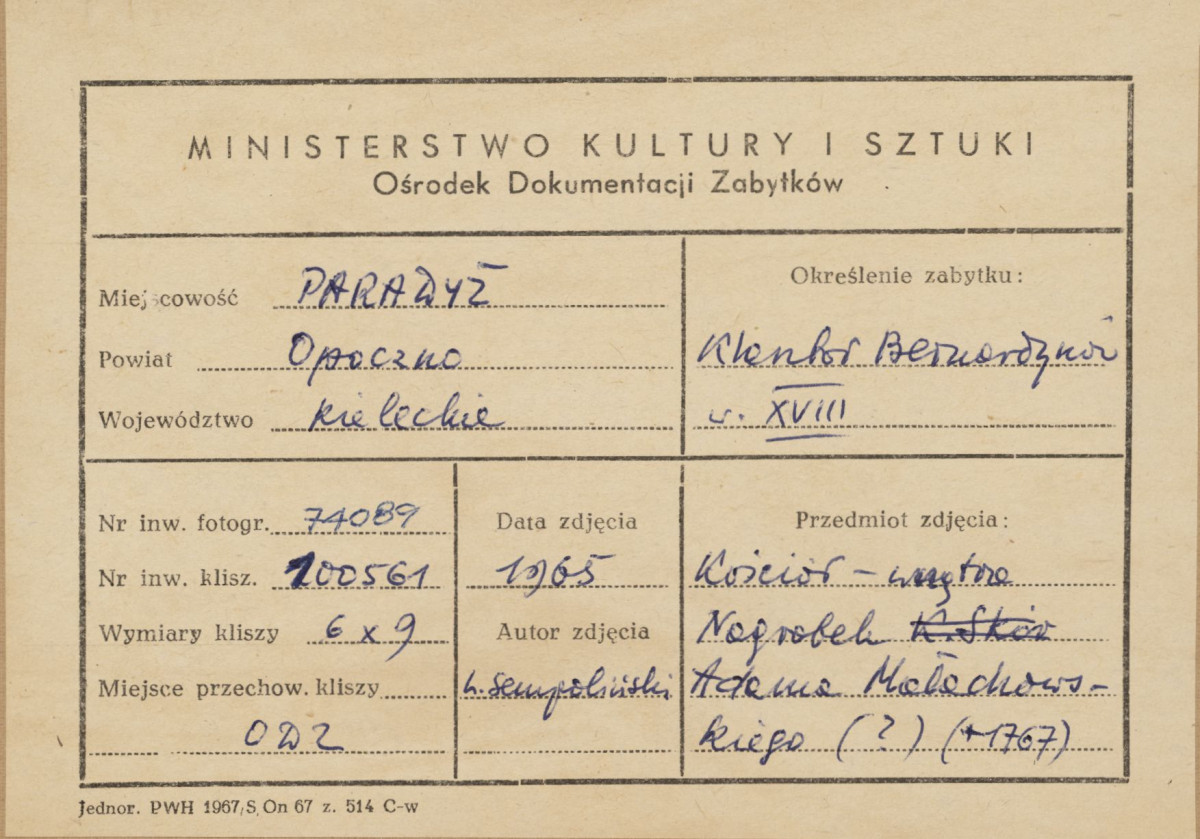 MINISTERSTWO KULTURY I SZTUKI
Ośrodek Dokumentacji Zabytków
Miejscowość PARADYŻ
Powiat Opoczno
Województwo kieleckie
Określenie zabytku:
Klasztor Bernardynów
w. XVIII
Nr inw. fotogr. 74089
Nr inw. klisz. 100561
Wymiary kliszy 6 x 9
Miejsce przechow. kliszy
ODZ
Data zdjęcia
1965
Autor zdjęcia
L. Sempoliński
Przedmiot zdjęcia:
Kościół – wnętrze
Nagrobek K. Skór
Adama Małachows-
kiego (?) (+1767)
Jednor. PWH 1967/S On 67 z. 514 C-w